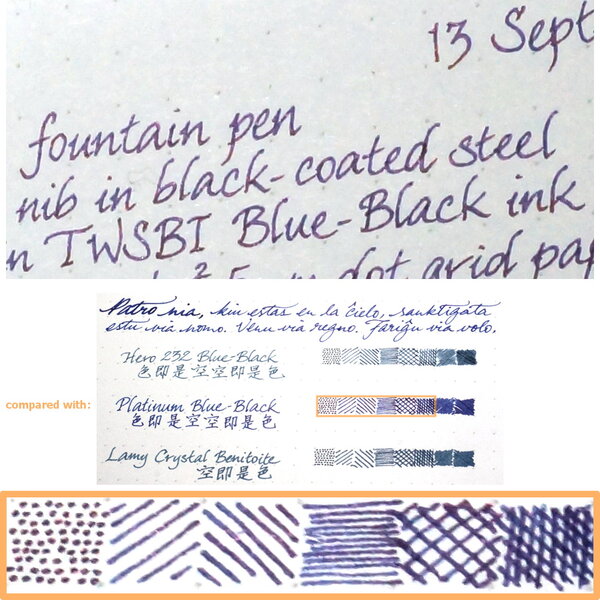 13 Sept
fountain pen
nib in black-coated steel
in TWSBI Blue-Black ink
dot grid pap
Patro nia, kiu estas en la ĉielo, sanktigata
estu via nomo. Venu via regno. Fariĝu via volo,
Hero 232 Blue-Black
色即是空空即是色
compared with:
Platinum Blue-Black
色即是空空即是色
Lamy Crystal Benitoite
空即是色